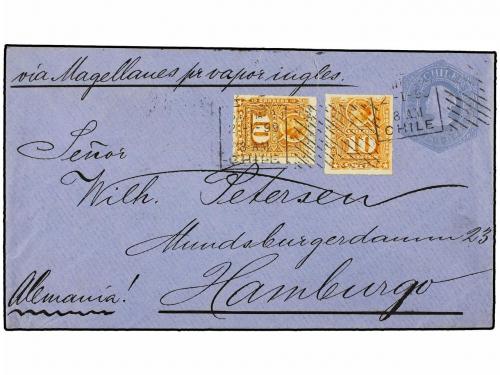 via Magellanes pr vapor ingles.
CHILE
10
10
8 A.M
CHILE
CHILE
Señor
Wilh. Petersen
Mundsburgerdamm 23
Hamburgo
Alemania!